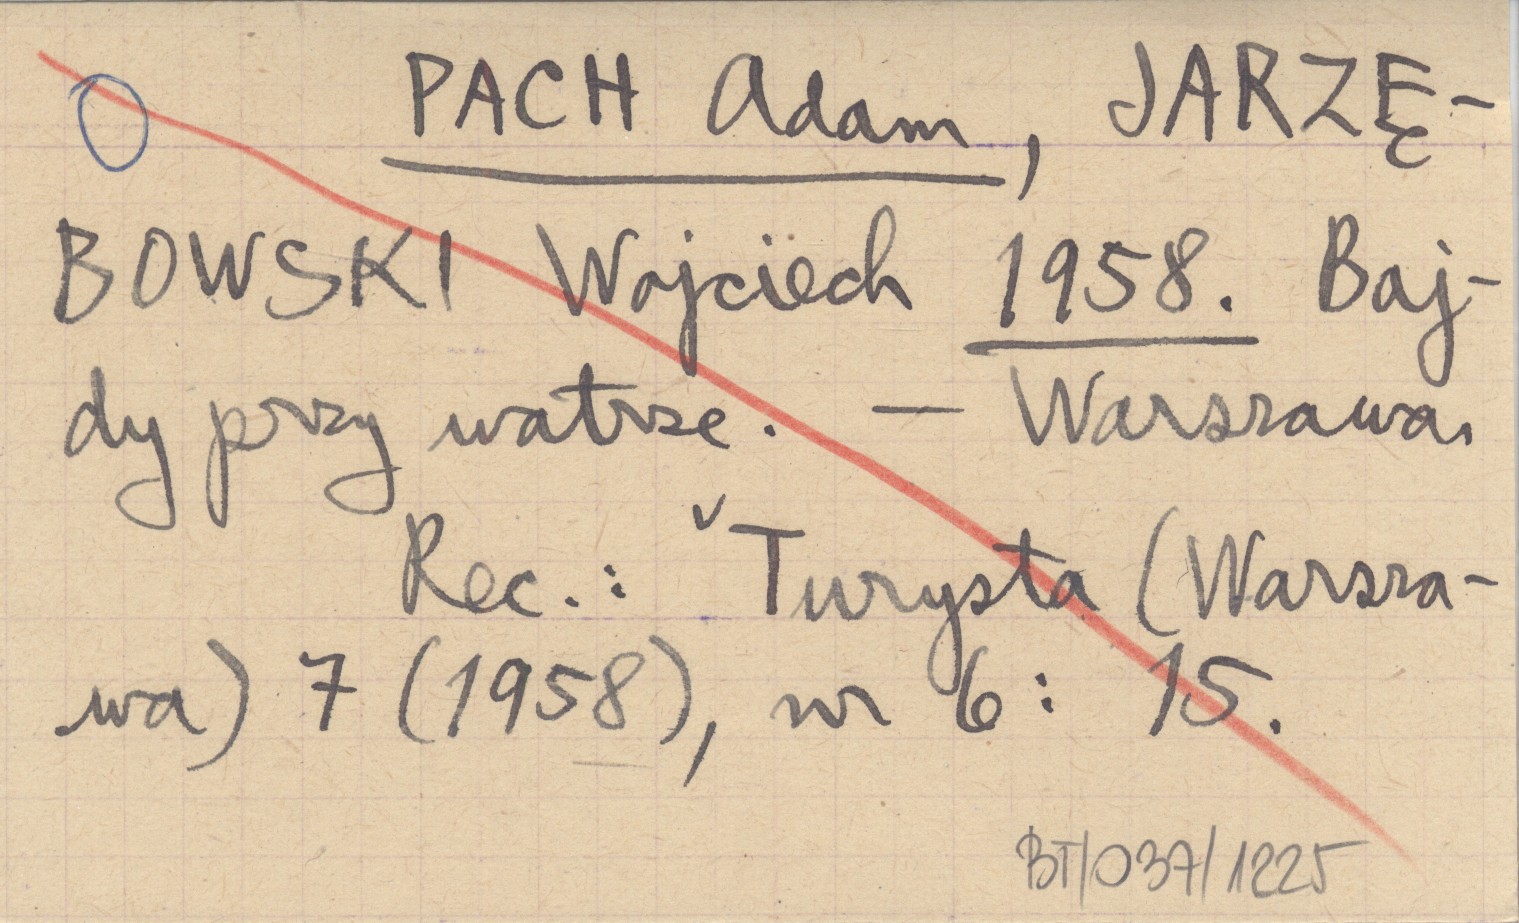 PACH Adam, JARZĘ-
BOWSKI Wojciech 1958. Baj-
dy przy watrze. — Warszawa.
Rec.: Turysta (Warsza-
wa) 7 (1958), nr 6: 15.
BT/037/1225